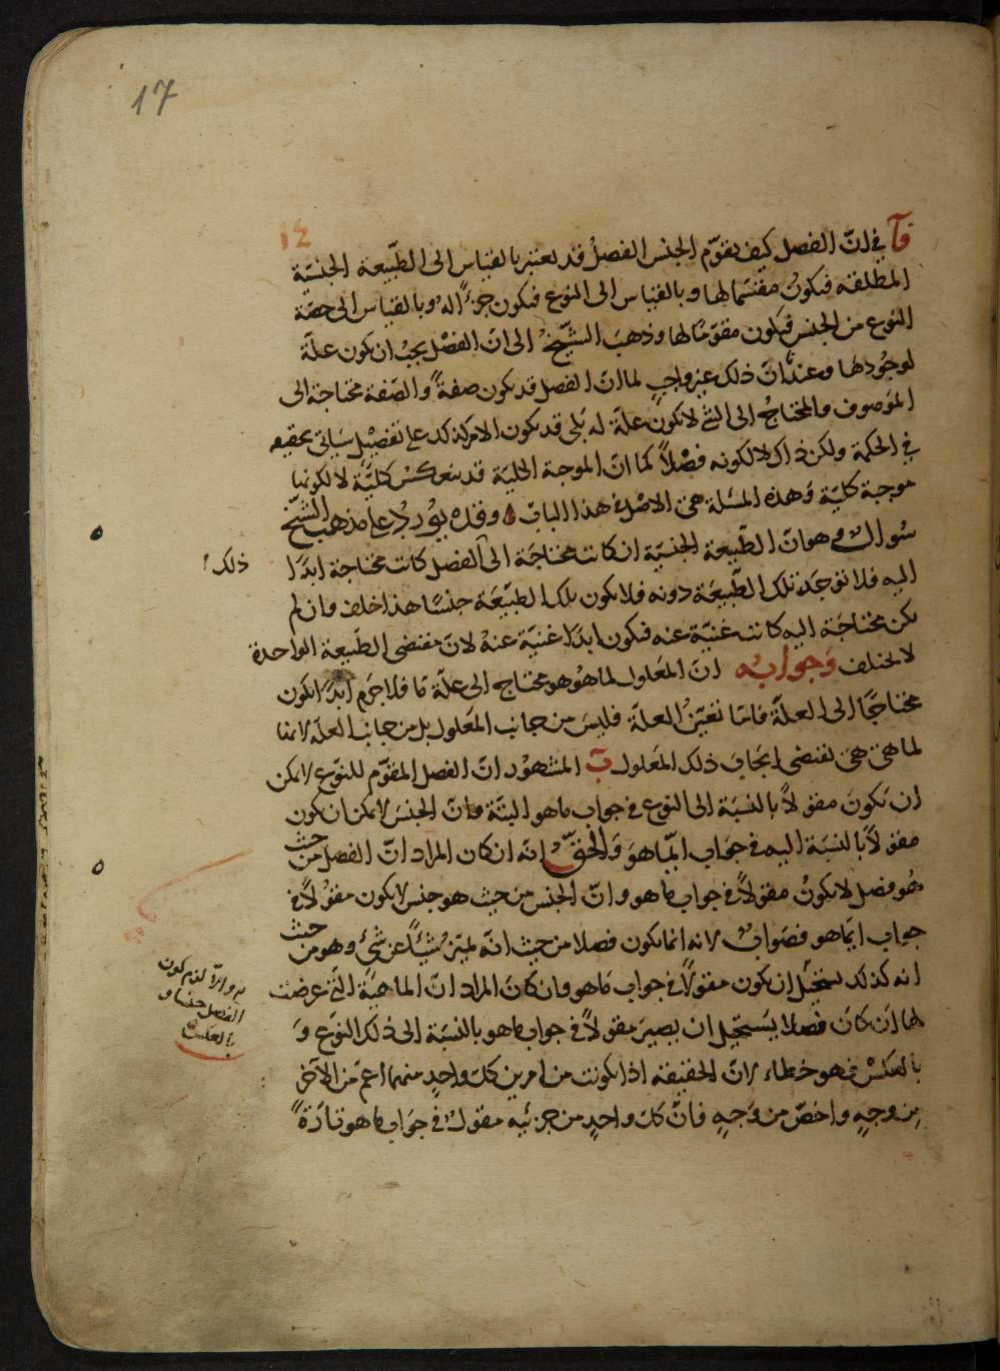 17
١٤
قآ في انّ الفصل كيف يقوّم الجنس الفصلُ قد يعتبر بالقياس الى الطّبيعة الجنسيّة
المطلقة فيكونُ مقسّما لها وبالقياس الى النوع فيكون جزءًا له وبالقياس الى حصّة
النوع من الجنس فيكون مقوّمًا لها وذهبَ الشّيخُ الى انّ الفصْل يجبُ ان يكون علّة
لوجُودها وعندنا انّ ذلك غير واجبٍ لما انّ الفصل قد يكون صفةً والصّفة محتاجة الى
الموَصوف والمحتاجُ الى الشئ لا يكون علّة له بَلى قد يكون الامر كذلك على تفصيْلٍ سيَاتى تحقيقه
في الحكمة ولكن ذاك لا لكونه فصْلاً كما انّ الموجبة الكلية قد تنعكسُ كليّةً لا لكونها
موجبة كليّة وَهذه المسْئلة هي الاصْل في هذا البابْ وقد يوُردُ على مذهب الشّيخ
سُوال وهو انّ الطّبيعة الجنسيّة ان كانت محتاجَة الى الفصل كانت محتاجة ابدًا
ذلك
اليه فلا توجَد تلك الطّبيعَة دونه فلا يكون تلك الطبيعَة جنسًا هذا خلف وان لم
يكن محتاجَة اليه كانت غنيّة عنه فيكون ابدًا غنيّة عنهُ لانّ مقتضى الطّبيعة الواحدة
لا يختلف وَجوابُه انّ المعَلول لما هوَ هو محتاج الى علّة مّا فلا جرَم ابَدًا يكون
محتاجًا الى العلّة فامّا تعيّنُ العلّة فليسَ من جانب المعَلول بل من جانب العلّة لانها
لما هي هي تقتضى ايجابَ ذلك المعَلول بَ المشهوُر انّ الفصل المقوّم للنوَع لا يمكن
ان يَكونَ مقولاً بالنسبَة الى النوع في جواب ما هو البتّة وانّ الجنسَ لا يمكن ان يكون
مقولاً بالنسبَة اليه في جوَاب ايّما هوَ وَالحقّ انّه ان كان المراد انّ الفصل من حيث
هُو فصل لا يكونُ مقولاً في جواب ما هو وانّ الجنس من حيث هو جنس لا يكون مقوُلاً في
جواب ايّما هو فصَوابٌ لانه انما يكون فصلا من حيث انّه يميّز شيئًا عن شئ وهو من حيث
انه كذلك يستحيْل ان يكون مقولاً في جواب مَا هو وان كانَ المراد انّ الماهيّة الّتي عرضت
لها ان كانَ فصلا يَستحيْل ان يصيرَ مقولاً في جواب ما هو بالنسبَة الى ذلك النوَع وَ
بالعكسْ فهو خطاء لانّ الحقيقة اذا تكونت من امرين كلّ واحدٍ منهما اعم من الآخر
مِن وجهٍ واخصّ من وَجهٍ فانّ كلّ واحدٍ من جزئيه مقول في جوَاب ما هو تارَةً
والاّ لزم كون
الفصل جنسا و
بالعكس